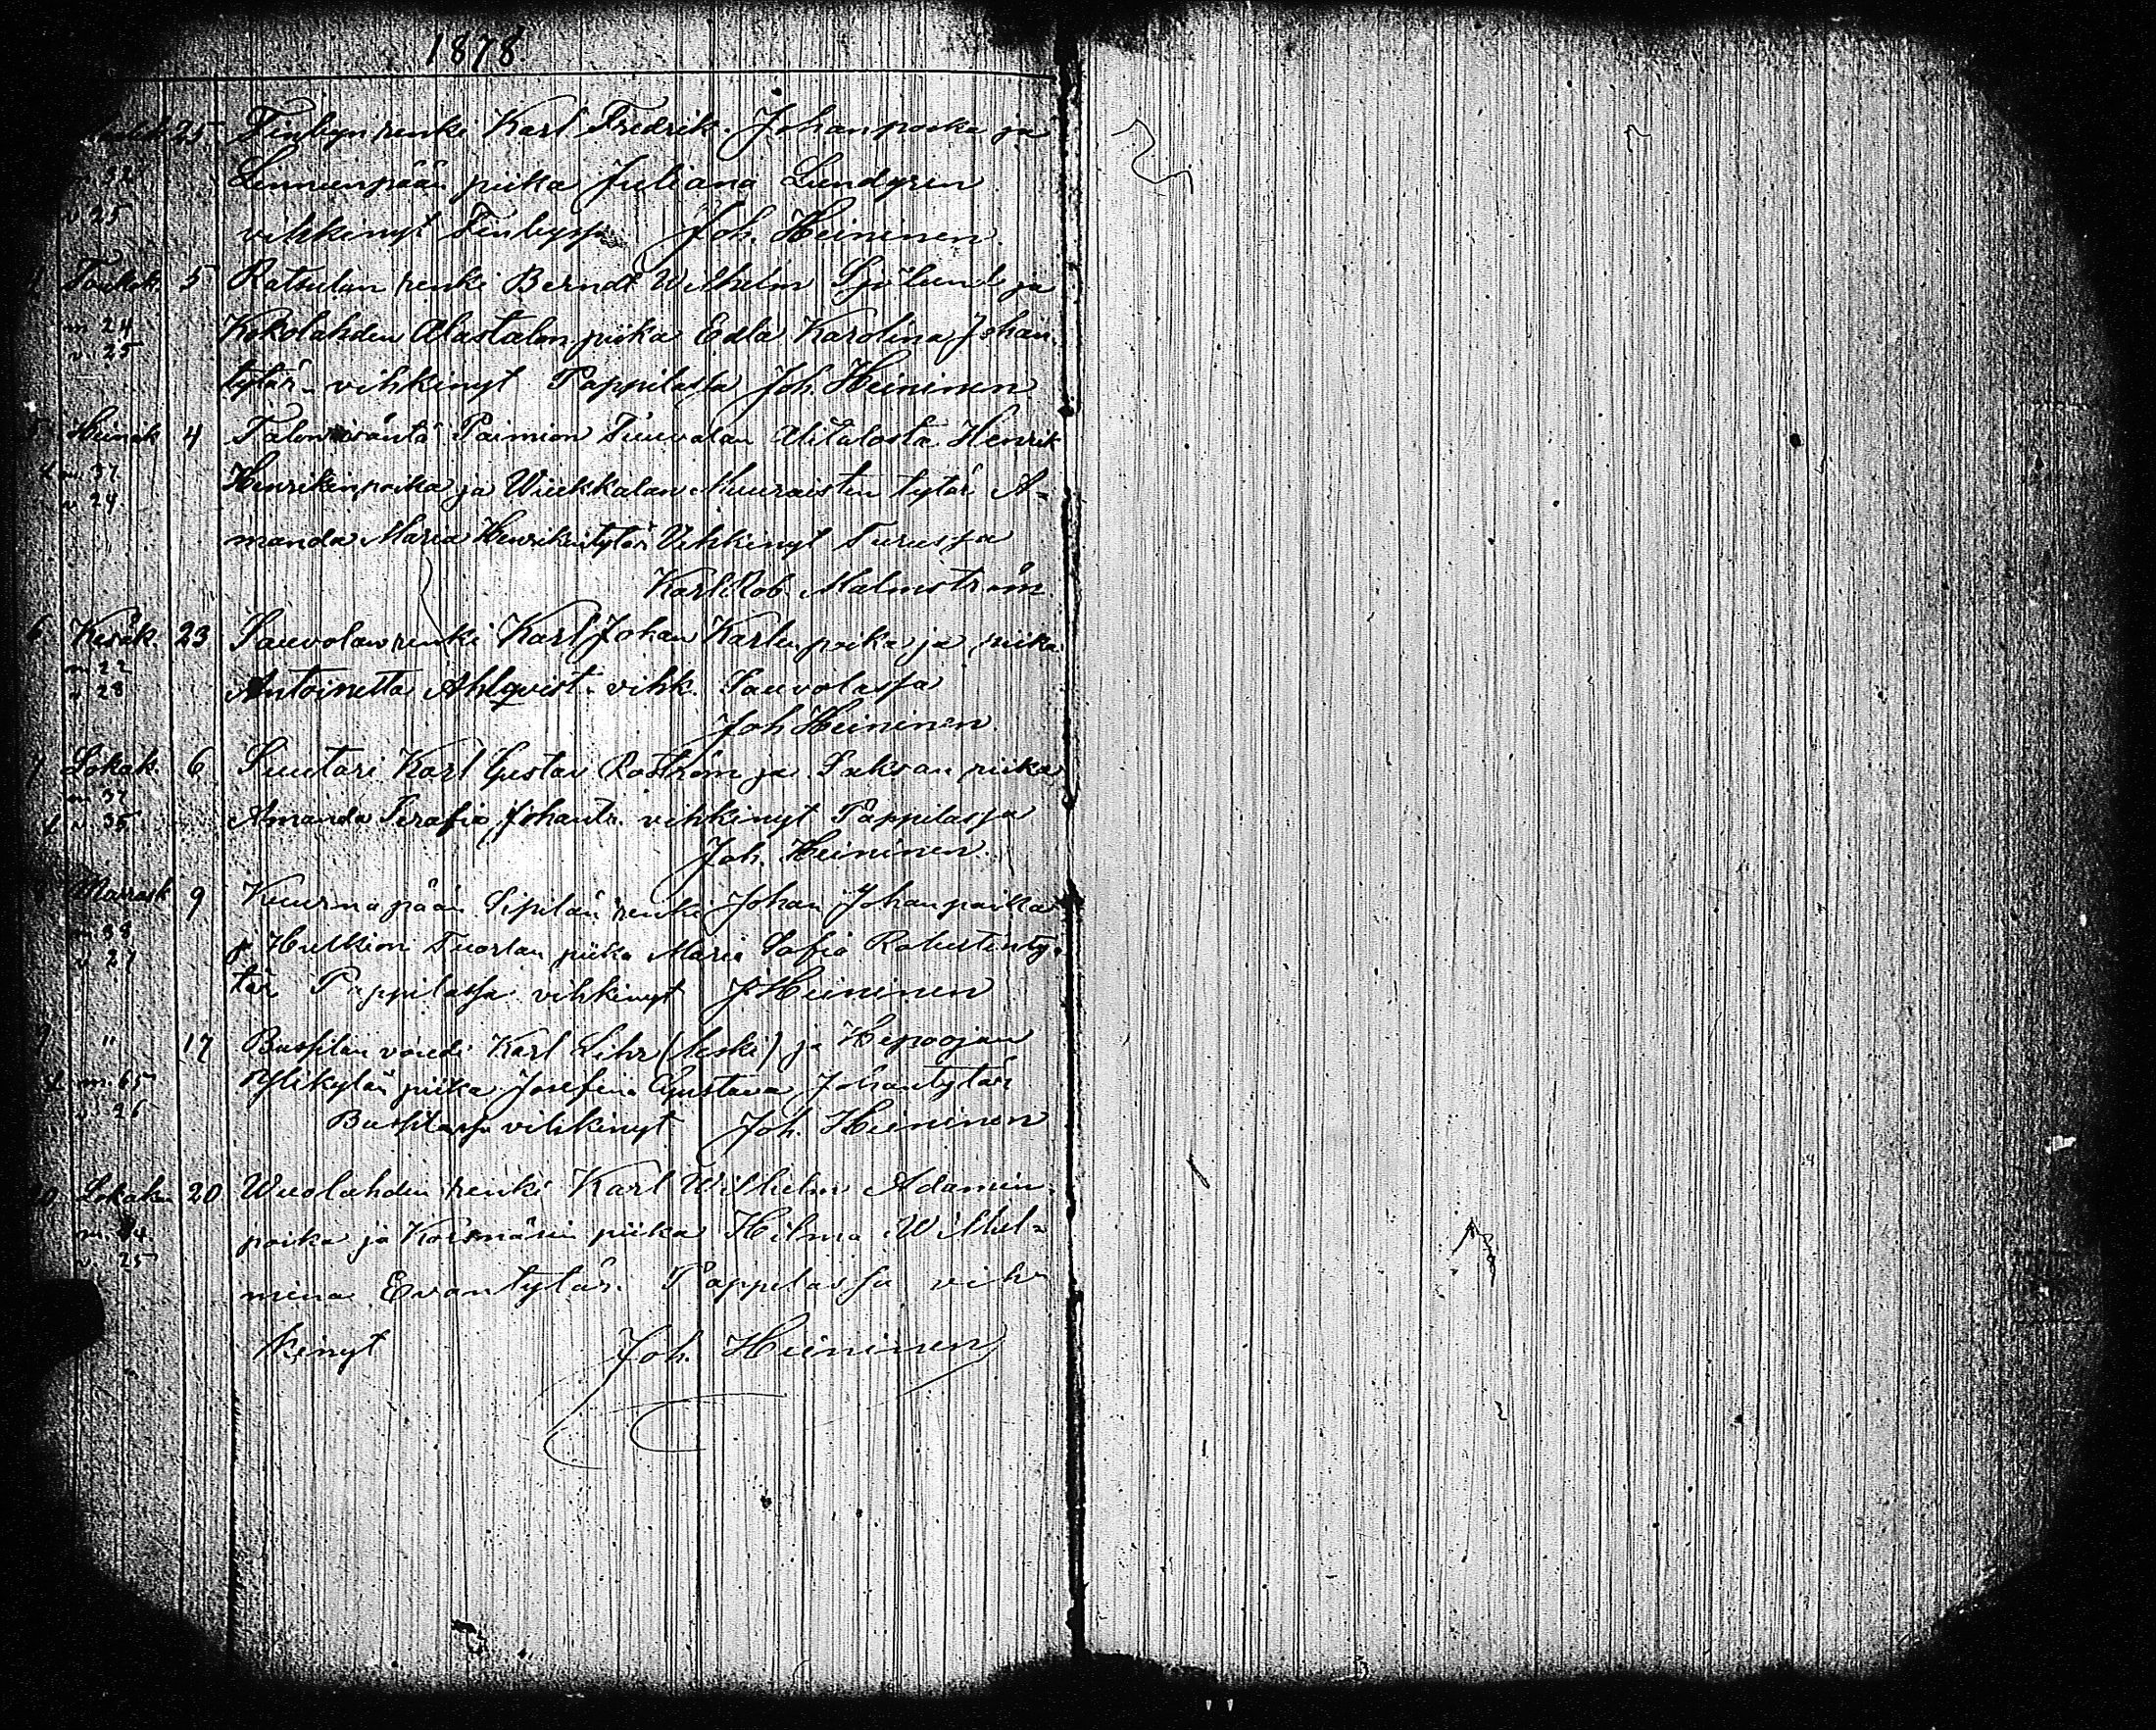 1878.
25. Finbyn renki Karl Fredrik Johanpoika ja
32 Linnunpään piika Juliana Lundgren
v 25 vihkinyt Finbyssä Joh. Heininen.
Toukok. 5 Ratsulan renki Berndt Wilhelm Sjölund ja
m 24 Kokolahden Alastalon piika Edla Karolina Johan-
v. 25
tytär - vihkinyt Pappilassa Joh. Heininen.
5 Heinäk 4 Talon isäntä Paimion Alitalosta Henrik
m. 37 Henrikinpoika ja Wiukkalan tytär A-
v 24.
manda Maria Henrikintytär Vihkinyt Turussa
Karl Rob. Malmström.
6 Kesäk. 23 Sauvolan renki Karl Johan Karlinpoika ja piika
m 22
v. 28 Antoinetta Ahlqvist. vihk. Sauvolassa
Joh Heininen.
7 Lokak. 6 Suutari Karl Gustav Roström ja piika
m. 37
v. 35 Amanda Serafia Johantr. vihkinyt Pappilassa
Joh. Heininen.
Marrask 9 Kuurnapään Sipilän renki Johan Johanpoika
m. 38
v 27 j. Hulkion Tuorlan piika Maria Sofia Robertinty-
tär Pappilassa vihkinyt J Heininen
9 " 17 vouti Karl Lihr (leski) ja Hepoojan
m. 65 Ylikylän piika Josefina Gustava Johantytär
v. 26 vihkinyt Joh. Heininen
10 Lokak. 20 Wuolahden renki Karl Wilhelm Adamin-
m. 24. poika ja piika Hilma Wilhel-
v. 25
mina Evantytär. Pappilassa vih-
kinyt Joh. Heininen